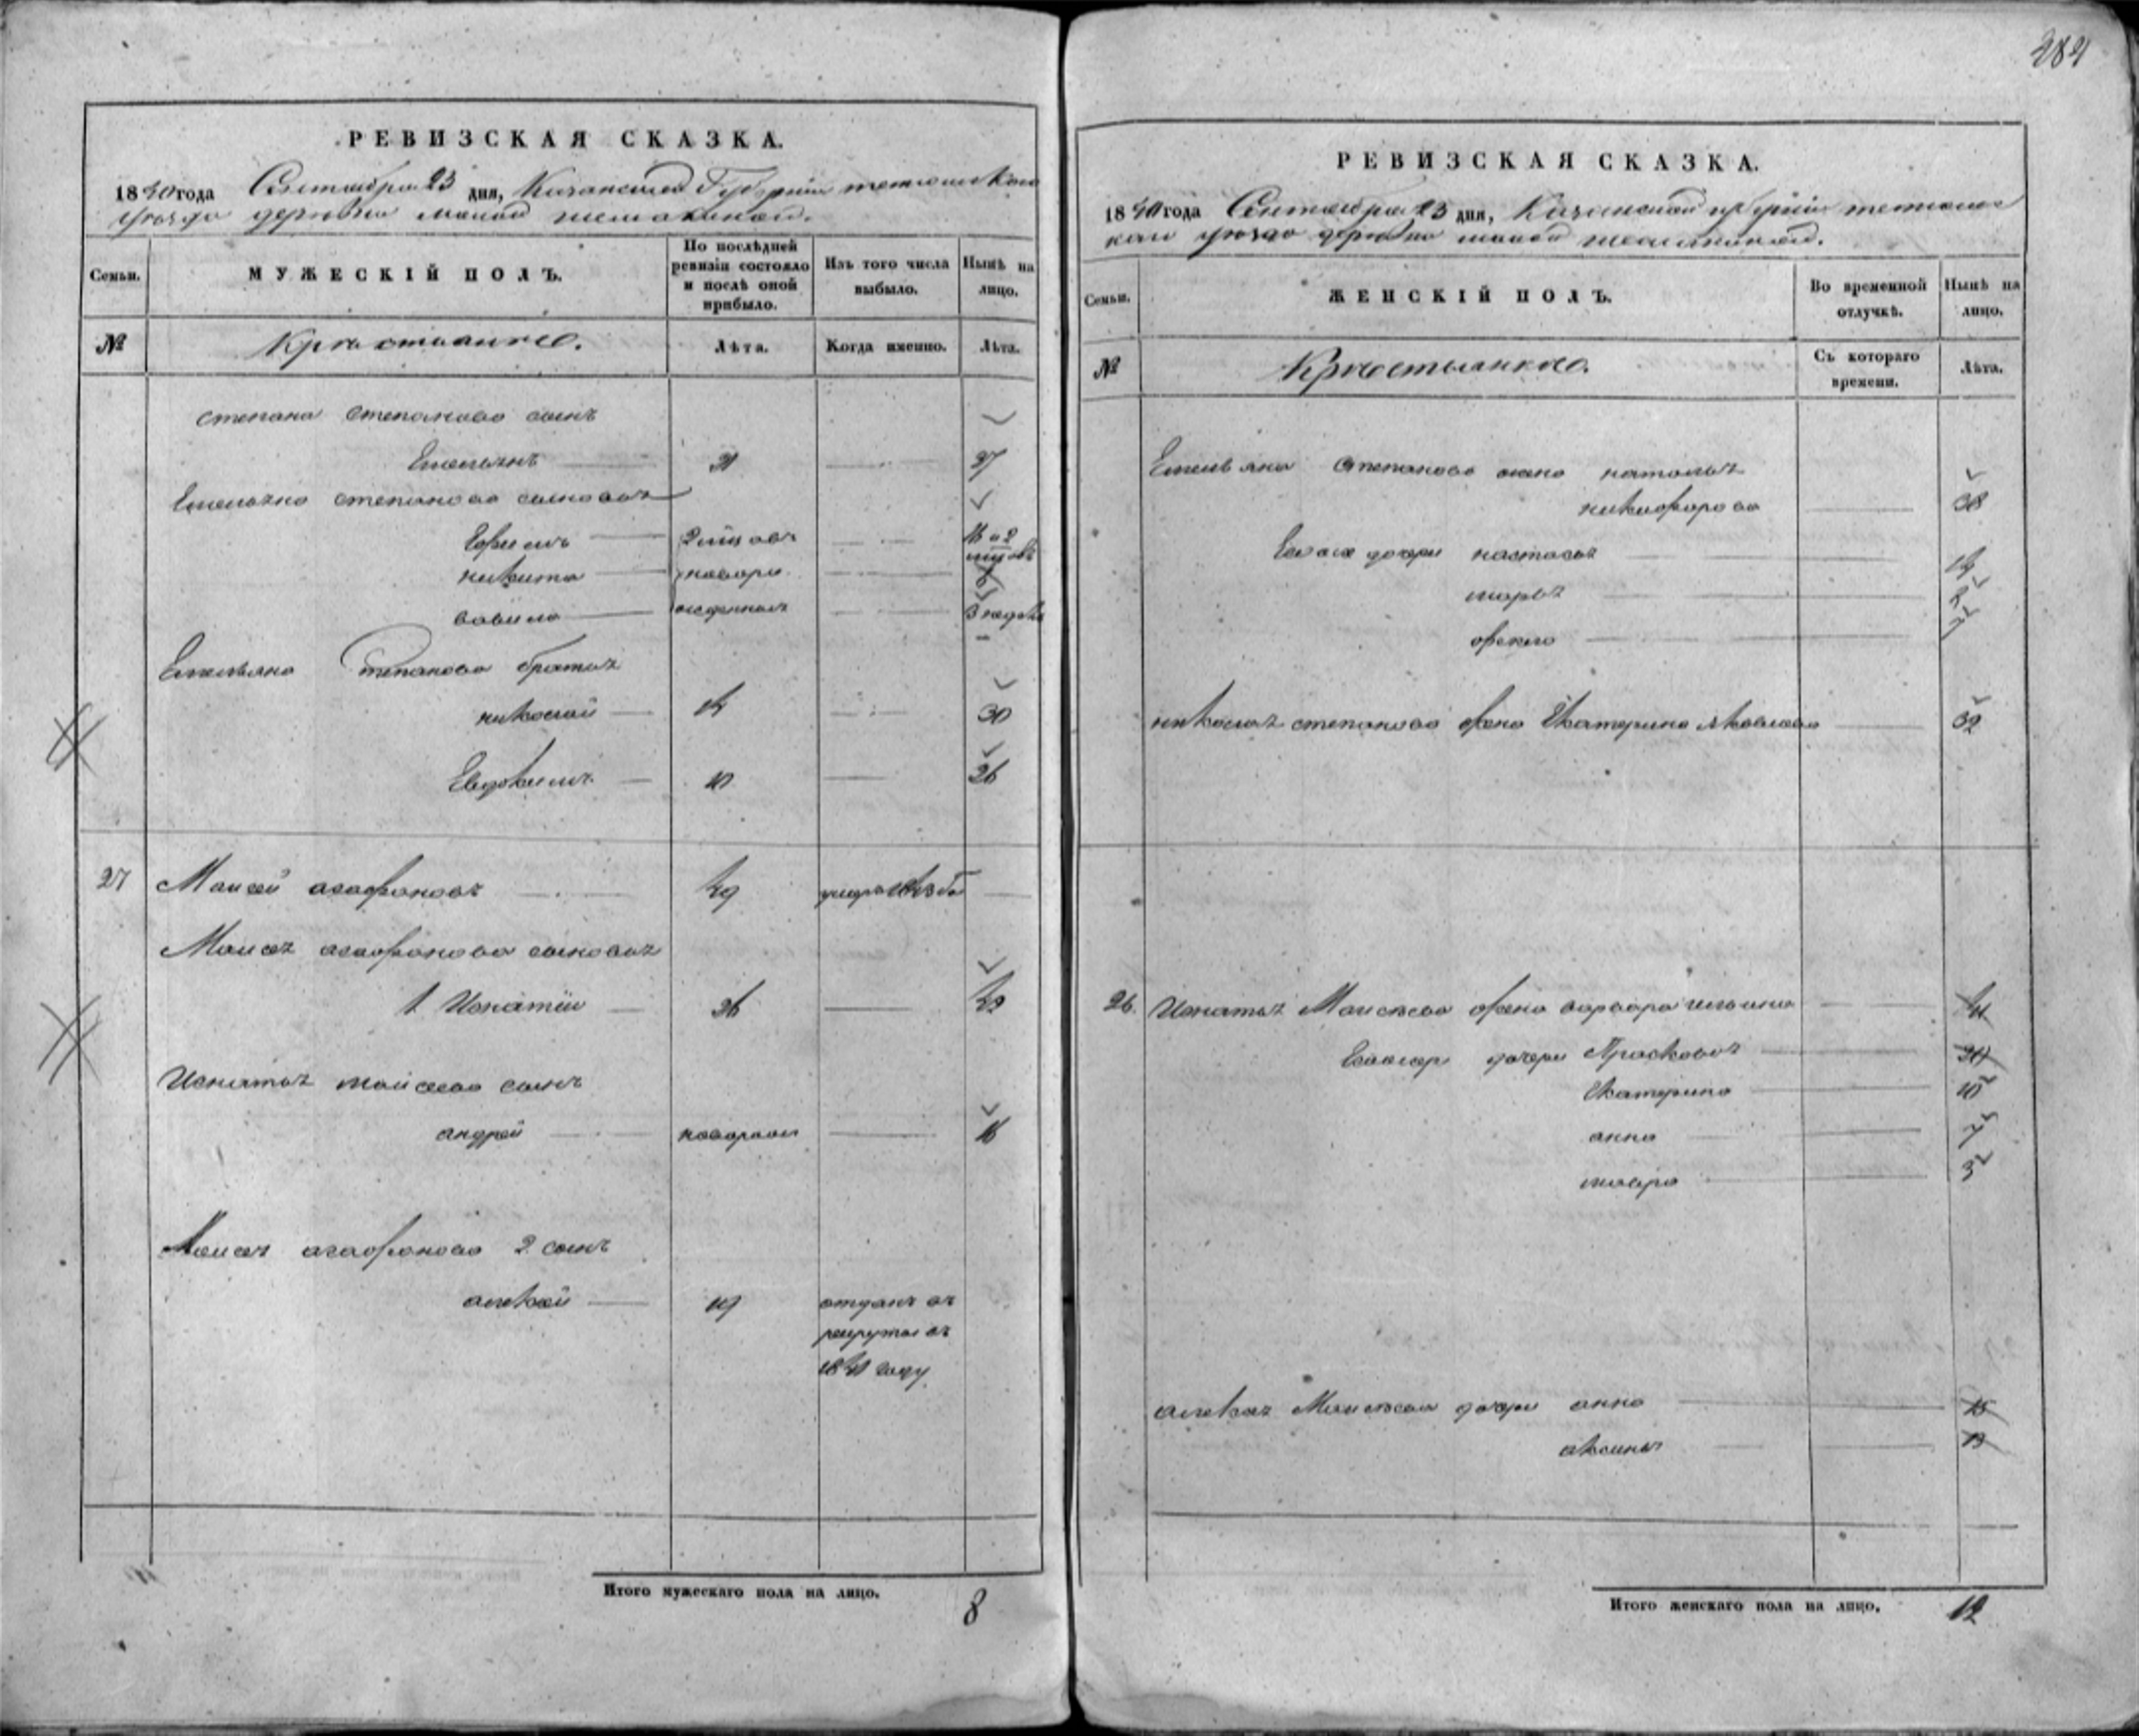 284
РЕВИЗСКАЯ СКАЗКА.
1850 года Сентября 23 дня, Казанской Губернии тетюшскаго
уезда деревни малой шемякиной.
Семьи.
МУЖЕСКІЙ ПОЛЪ.
По послѣдней ревизіи состояло и послѣ оной прибыло.
Изъ того числа выбыло.
Нынѣ на лицо.
№
Крестьяне.
Лѣта.
Когда именно.
Лѣта.
степана степанова сынъ
Емельянъ 21 37
Емельяна степанова сыновья
Ефимъ 2 мцовъ
никита новоро
вавило жденныя 3 недели
Емельяна Степанова братья
николай 14 30
Евдокимъ 10 26
27 Моисей агафоновъ 49 умре
Моисея агафонова сыновья
1. Игнатiй 26 42
Игнатья моисеева сынъ
андрей новорож 16
Моисея агафонова 2 сынъ
алексей 19 отданъ въ
рекруты въ
1841 году
Итого мужескаго пола на лицо. 8
РЕВИЗСКАЯ СКАЗКА.
1850 года Сентября 23 дня, Казанской губернии тетюшс
каго уезда деревни малой шемякиной.
Семьи.
ЖЕНСКІЙ ПОЛЪ.
Во временной отлучкѣ.
Нынѣ на лицо.
№
Крестьянке.
Съ котораго времени.
Лѣта.
Емельяна Степанова жена наталья
никифорова 38
Ево же дочери настасья 14
марья
фекла
николая степанова жена Екатерина яковлева 32
26. Игнатья Моисеева жена варвара ильина 41
Ево же дочери Прасковья
Екатерина 10
анна 7
мавра 3
алексея Моисеева дочери анна 15
аксинья 13
Итого женскаго пола на лицо. 12